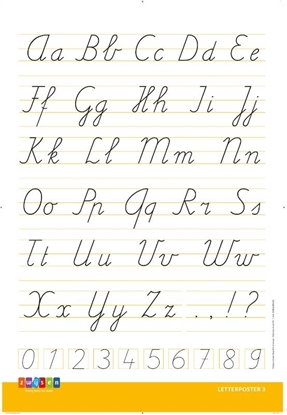 Aa Bb Cc Dd Ee
Ff Gg Hh Ii Jj
Kk Ll Mm Nn
Oo Pp Qq Rr Ss
Tt Uu Vv Ww
Xx Yy Zz . , ! ?
0 1 2 3 4 5 6 7 8 9
zwijsen
LETTERPOSTER 3